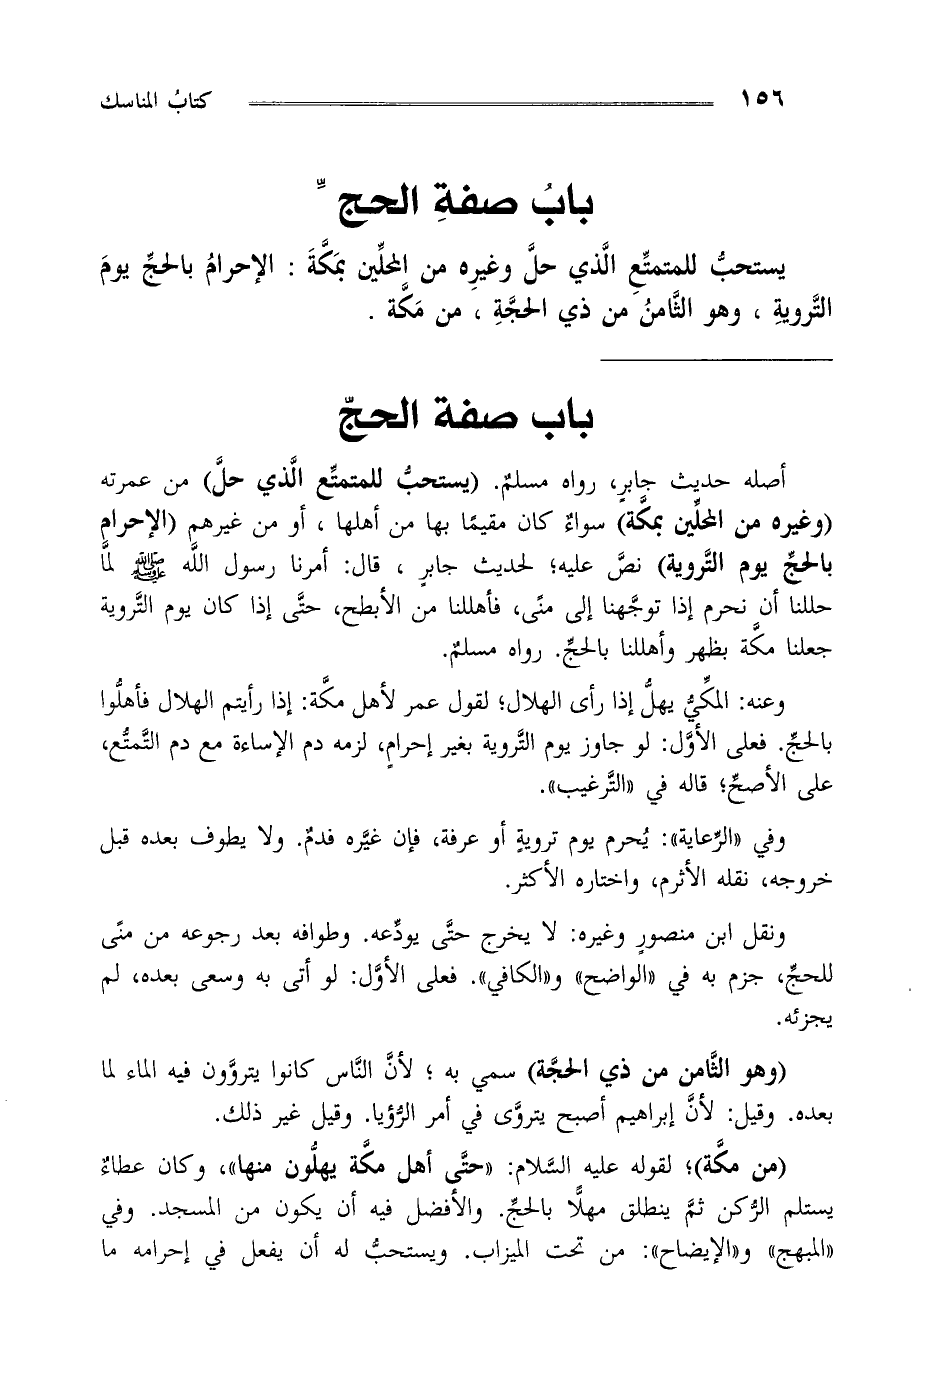 ١٥٦ كتابُ المناسك
بابُ صفةِ الحجِّ
يستحبُّ للمتمتِّعِ الَّذي حلَّ وغيرِه من المحلِّين بمَكَّةَ : الإحرامُ بالحجِّ يومَ
التَّرويةِ ، وهو الثَّامنُ من ذي الحجَّةِ ، من مَكَّة .
باب صفة الحجّ
أصله حديث جابرٍ، رواه مسلمٌ. (يستحبُّ للمتمتِّع الَّذي حلَّ) من عمرته
(وغيره من المحلِّين بمكَّة) سواءٌ كان مقيمًا بها من أهلها ، أو من غيرهم (الإحرام
بالحجِّ يوم التَّروية) نصَّ عليه؛ لحديث جابرٍ ، قال: أمرنا رسول الله ﷺ لمَّا
حللنا أن نحرم إذا توجَّهنا إلى منًى، فأهللنا من الأبطح، حتَّى إذا كان يوم التَّروية
جعلنا مكَّة بظهر وأهللنا بالحجِّ. رواه مسلمٌ.
وعنه: المكِّيُّ يهلُّ إذا رأى الهلال؛ لقول عمر لأهل مكَّة: إذا رأيتم الهلال فأهلُّوا
بالحجِّ. فعلى الأوَّل: لو جاوز يوم التَّروية بغير إحرامٍ، لزمه دم الإساءة مع دم التَّمتُّع،
على الأصحِّ؛ قاله في «التَّرغيب».
وفي «الرِّعاية»: يُحرم يوم ترويةٍ أو عرفة، فإن غيَّره فدمٌ. ولا يطوف بعده قبل
خروجه، نقله الأثرم، واختاره الأكثر.
ونقل ابن منصورٍ وغيره: لا يخرج حتَّى يودِّعه. وطوافه بعد رجوعه من منًى
للحجِّ، جزم به في «الواضح» و«الكافي». فعلى الأوَّل: لو أتى به وسعى بعده، لم
يجزئه.
(وهو الثَّامن من ذي الحجَّة) سمي به ؛ لأنَّ النَّاس كانوا يتروَّون فيه الماء لما
بعده. وقيل: لأنَّ إبراهيم أصبح يتروَّى في أمر الرُّؤيا. وقيل غير ذلك.
(من مكَّة)؛ لقوله عليه السَّلام: «حتَّى أهل مكَّة يهلُّون منها»، وكان عطاءٌ
يستلم الرُّكن ثمَّ ينطلق مهلًّا بالحجِّ. والأفضل فيه أن يكون من المسجد. وفي
«المبهج» و«الإيضاح»: من تحت الميزاب. ويستحبُّ له أن يفعل في إحرامه ما